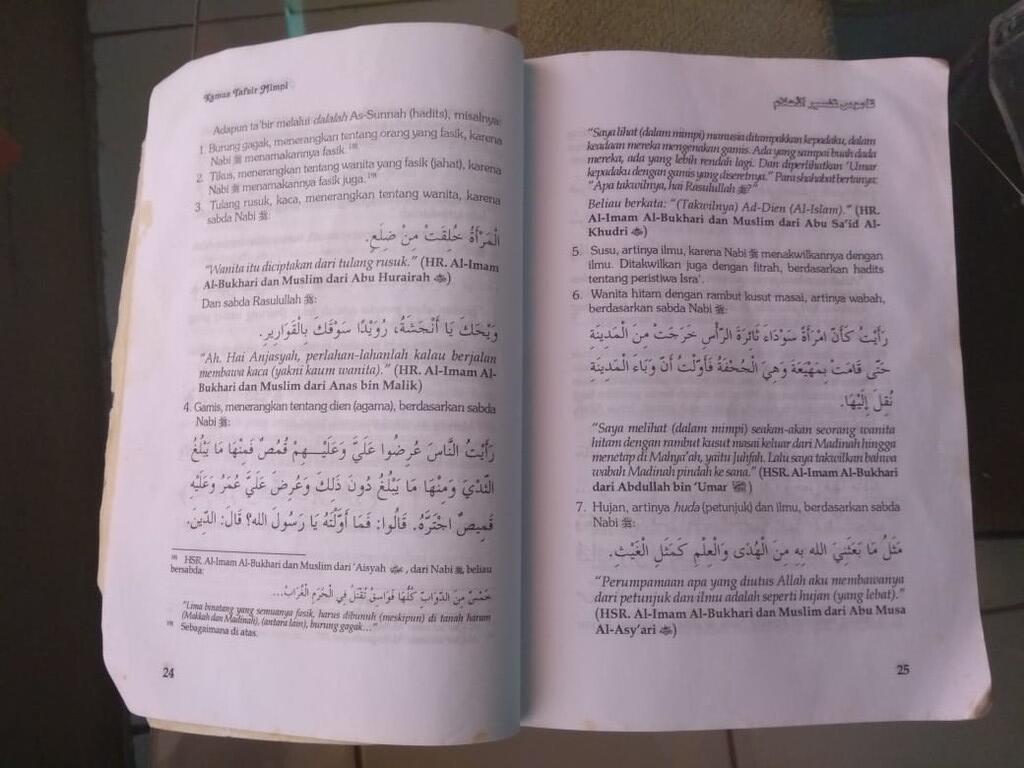 Kamus Tafsir Mimpi
Adapun ta'bir melalui dalalah As-Sunnah (hadits), misalnya:
1. Burung gagak, menerangkan tentang orang yang fasik, karena
Nabi ﷺ menamakannya fasik.
2. Tikus, menerangkan tentang wanita yang fasik (jahat), karena
Nabi ﷺ menamakannya fasik juga.
3. Tulang rusuk, kaca, menerangkan tentang wanita, karena
sabda Nabi ﷺ:
الْمَرْأَةُ خُلِقَتْ مِنْ ضِلَعٍ.
"Wanita itu diciptakan dari tulang rusuk." (HR. Al-Imam
Al-Bukhari dan Muslim dari Abu Hurairah)
Dan sabda Rasulullah ﷺ:
وَيْحَكَ يَا أَنْجَشَةُ، رُوَيْدًا سَوْقَكَ بِالْقَوَارِيرِ.
"Ah. Hai Anjasyah, perlahan-lahanlah kalau berjalan
membawa kaca (yakni kaum wanita)." (HR. Al-Imam Al-
Bukhari dan Muslim dari Anas bin Malik)
4. Gamis, menerangkan tentang dien (agama), berdasarkan sabda
Nabi ﷺ:
رَأَيْتُ النَّاسَ عُرِضُوا عَلَيَّ وَعَلَيْهِمْ قُمُصٌ فَمِنْهَا مَا يَبْلُغُ
الثَّدْيَ وَمِنْهَا مَا يَبْلُغُ دُونَ ذَلِكَ وَعُرِضَ عَلَيَّ عُمَرُ وَعَلَيْهِ
قَمِيصٌ اجْتَرَّهُ. قَالُوا: فَمَا أَوَّلْتَهُ يَا رَسُولَ الله؟ قَالَ: الدِّينَ.
HSR. Al-Imam Al-Bukhari dan Muslim dari 'Aisyah, dari Nabi ﷺ, beliau
bersabda:
خَمْسٌ مِنَ الدَّوَابِّ كُلُّهَا فَوَاسِقُ تُقْتَلُ فِي الْحَرَمِ الْغُرَابُ...
"Lima binatang yang semuanya fasik, harus dibunuh (meskipun) di tanah haram
(Makkah dan Madinah), (antara lain), burung gagak..."
Sebagaimana di atas.
24
قاموس تفسير الأحلام
"Saya lihat (dalam mimpi) manusia ditampakkan kepadaku, dalam
keadaan mereka mengenakan gamis. Ada yang sampai buah dada
mereka, ada yang lebih rendah lagi. Dan diperlihatkan 'Umar
kepadaku dengan gamis yang diseretnya." Para shahabat bertanya:
"Apa takwilnya, hai Rasulullah ﷺ?"
Beliau berkata: "(Takwilnya) Ad-Dien (Al-Islam)." (HR.
Al-Imam Al-Bukhari dan Muslim dari Abu Sa'id Al-
Khudri)
5. Susu, artinya ilmu, karena Nabi ﷺ menakwilkannya dengan
ilmu. Ditakwilkan juga dengan fitrah, berdasarkan hadits
tentang peristiwa Isra'.
6. Wanita hitam dengan rambut kusut masai, artinya wabah,
berdasarkan sabda Nabi ﷺ:
رَأَيْتُ كَأَنَّ امْرَأَةً سَوْدَاءَ ثَائِرَةَ الرَّأْسِ خَرَجَتْ مِنَ الْمَدِينَةِ
حَتَّى قَامَتْ بِمَهْيَعَةَ وَهِيَ الْجُحْفَةُ فَأَوَّلْتُ أَنَّ وَبَاءَ الْمَدِينَةِ
نُقِلَ إِلَيْهَا.
"Saya melihat (dalam mimpi) seakan-akan seorang wanita
hitam dengan rambut kusut masai keluar dari Madinah hingga
menetap di Mahya'ah, yaitu Juhfah. Lalu saya takwilkan bahwa
wabah Madinah pindah ke sana." (HSR. Al-Imam Al-Bukhari
dari Abdullah bin 'Umar)
7. Hujan, artinya huda (petunjuk) dan ilmu, berdasarkan sabda
Nabi ﷺ:
مَثَلُ مَا بَعَثَنِيَ الله بِهِ مِنَ الْهُدَى وَالْعِلْمِ كَمَثَلِ الْغَيْثِ.
"Perumpamaan apa yang diutus Allah aku membawanya
dari petunjuk dan ilmu adalah seperti hujan (yang lebat)."
(HSR. Al-Imam Al-Bukhari dan Muslim dari Abu Musa
Al-Asy'ari)
25